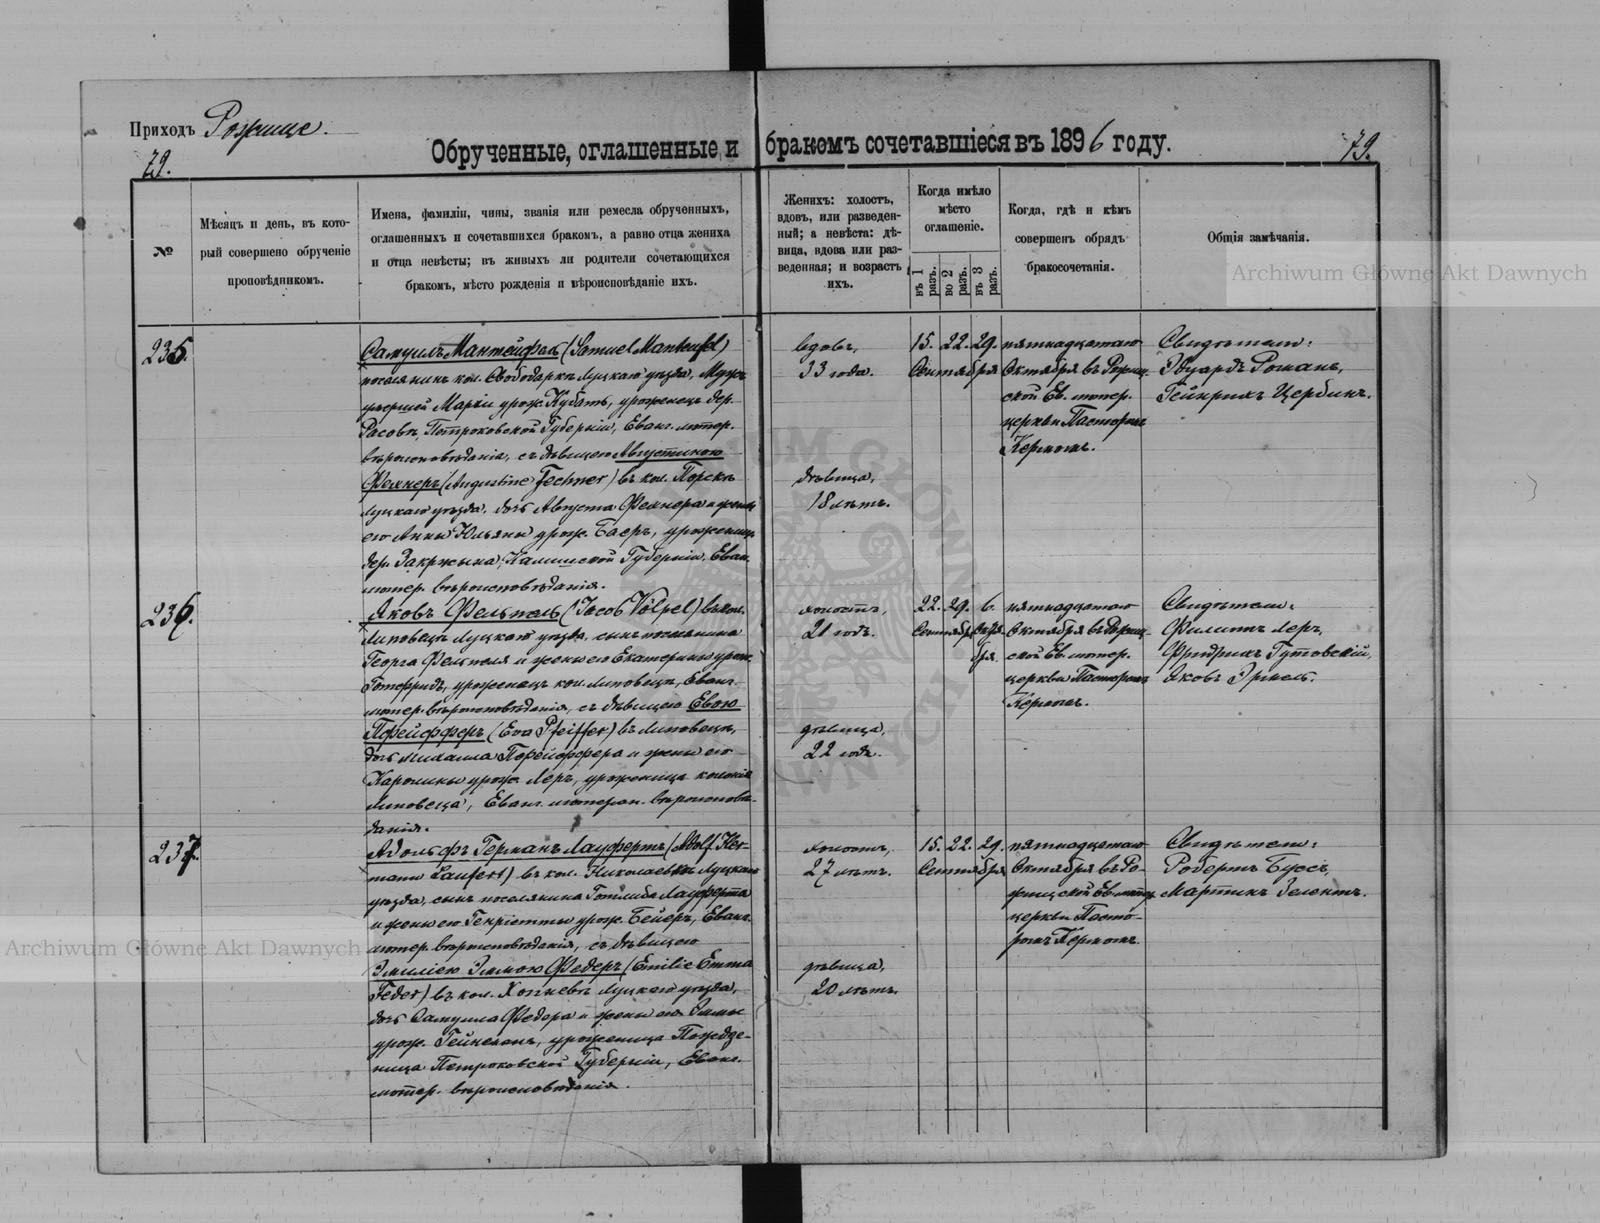 Приходъ Рожище.
79.
Обрученные, оглашенные и бракомъ сочетавшіеся въ 1896 году.
79.
№
Мѣсяцъ и день, въ кото-
рый совершено обрученіе
проповѣдникомъ.
Имена, фамиліи, чины, званія или ремесла обрученныхъ,
оглашенныхъ и сочетавшихся бракомъ, а равно отца жениха
и отца невѣсты; въ живыхъ ли родители сочетающихся
бракомъ, мѣсто рожденія и вѣроисповѣданіе ихъ.
Женихъ: холостъ,
вдовъ, или разведен-
ный; а невѣста: дѣ-
вица, вдова или раз-
веденная; и возрастъ
ихъ.
Когда имѣло
мѣсто
оглашеніе.
въ 1 разъ.
во 2 разъ.
въ 3 разъ.
Когда, гдѣ и кѣмъ
совершенъ обрядъ
бракосочетанія.
Общія замѣчанія.
Archiwum Główne Akt Dawnych
235.
Самуилъ Мантейфель (Samuel Manteufel)
поселянинъ кол. Свободарка Луцкаго уѣзда, Мужъ
умершей Маріи урож. Кубатъ, уроженецъ дер.
Расовъ, Петроковской Губерніи, Еванг. лютер.
вѣроисповѣданія, съ дѣвицею Августиною
Фехнеръ (Augustine Fechner) въ кол. Торскъ
Луцкаго уѣзда, дочь Августа Фехнера и жены
его Анны Юльяны урож. Баеръ, уроженица
дер. Закржына, Калишской Губерніи, Еванг.
лютер. вѣроисповѣданія.
вдовъ,
33 года.
дѣвица,
18 лѣтъ.
15. 22. 29.
Сентября
пятнадцатаго
Октября въ Рожищ-
ской Ев. лютер.
церкви Пасторомъ
Кермомъ.
Свидѣтели:
Эдуардъ Романъ,
Гейнрихъ Цербинъ.
236.
Яковъ Фельпель (Jacob Völpel) въ кол.
Липовецъ Луцкаго уѣзда, сынъ поселянина
Георга Фельпеля и жены его Екатерины урож.
Готфридъ, уроженецъ кол. Липовецъ, Еванг.
лютер. вѣроисповѣданія, съ дѣвицею Евою
Пфейфферъ (Eva Pfeiffer) въ Липовецъ,
дочь Михаила Пфейффера и жены его
Каролины урож. Леръ, уроженица колоніи
Липовеца, Еванг. лютеран. вѣроисповѣ-
данія.
холостъ,
21 годъ.
дѣвица,
22 года.
22. 29. 6.
Сентября Октя-
бря
пятнадцатаго
Октября въ Рожищ-
ской Ев. лютер.
церкви Пасторомъ
Кермомъ.
Свидѣтели:
Филиппъ Леръ,
Фридрихъ Гутовскій,
Яковъ Эркель.
237.
Адольфъ Германъ Лауфертъ (Adolf Her-
mann Laufert) въ кол. Николаевкѣ Луцкаго
уѣзда, сынъ поселянина Готлиба Лауферта
и жены его Генріетты урож. Бейеръ, Еванг.
лютер. вѣроисповѣданія, съ дѣвицею
Эмиліею Эммою Федеръ (Emilie Emma
Feder) въ кол. Копчевъ Луцкаго уѣзда,
дочь Самуила Федера и жены его Эммы
урож. Гейнеманъ, уроженица Пождзе-
ница Петроковской Губерніи, Еванг.
лютер. вѣроисповѣданія.
холостъ,
27 лѣтъ.
дѣвица,
20 лѣтъ.
15. 22. 29.
Сентября
пятнадцатаго
Октября въ Ро-
жищской Ев. лютер.
церкви Пасто-
ромъ Кермомъ.
Свидѣтели:
Робертъ Буссъ,
Мартинъ Зелентъ.
Archiwum Główne Akt Dawnych